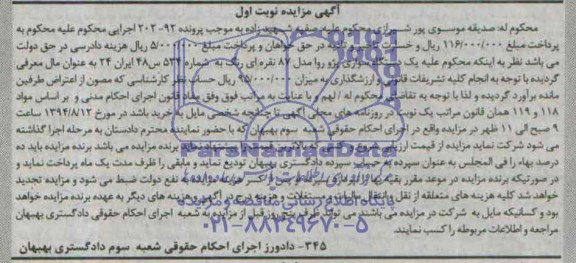 آگهی مزایده نوبت اول
محکوم له: صدیقه موسوی پور محکوم علیه: شهید زاده به موجب پرونده ۹۲-۲۰۲ اجرایی محکوم علیه محکوم به
پرداخت مبلغ ۱۱۶/۰۰۰/۰۰۰ ریال و خسارت تاخیر تادیه در حق خواهان و پرداخت مبلغ ۵/۰۰۰/۰۰۰ ریال هزینه دادرسی در حق دولت
می باشد نظر به اینکه محکوم علیه یک دستگاه سواری پژو روا مدل ۸۷ نقره ای رنگ به شماره ۵۳۴ س ۴۸ ایران ۲۴ به عنوان مال معرفی
گردیده با توجه به انجام کلیه تشریفات قانونی و ارزشگذاری به میزان ۹۵/۰۰۰/۰۰۰ ریال حسب نظر کارشناسی که مصون از اعتراض طرفین
مانده برآورد گردیده و لذا با توجه به تقاضای محکوم له / لهم و با عنایت به مراتب فوق وفق مفاد قانون اجرای احکام مدنی و بر اساس مواد
۱۱۸ و ۱۱۹ همان قانون مراتب یک نوبت در روزنامه های محلی آگهی تا چنانچه شخصی مایل به خرید باشد در مورخ ۱۳۹۴/۸/۱۲ ساعت
۹ صبح الی ۱۱ ظهر در مزایده واقع در اجرای احکام حقوقی شعبه سوم بهبهان که با حضور نماینده محترم دادستان به مرحله اجرا گذاشته
می شود شرکت نماید مزایده از قیمت ارزیابی پیشنهاد برنده مزایده می باشد برنده مزایده باید ده
درصد بهاء را فی المجلس به عنوان سپرده به حساب سپرده دادگستری بهبهان تودیع نماید و مابقی را ظرف مدت یک ماه پرداخت نماید و
در صورتیکه برنده مزایده در موعد مقرر بقیه بها را نپردازد سپرده او پس از کسر هزینه مزایده به نفع دولت ضبط می شود و مزایده تجدید
خواهد شد کلیه هزینه های متعلقه از نقل و انتقال مالیات و هزینه درج آگهی و هزینه های دیگر به عهده برنده مزایده خواهد
بود و کسانیکه مایل به شرکت در مزایده می باشند می توانند ظرف پنج روز قبل از مزایده به شعبه اجرای احکام حقوقی دادگستری بهبهان
مراجعه و اطلاعات مربوطه را کسب نمایند.
۳۴۵- دادورز اجرای احکام حقوقی شعبه سوم دادگستری بهبهان
ParsNamadData
پایگاه اطلاع رسانی مناقصه و مزایده
۰۲۱-۸۸۳۴۹۶۷۰-۵